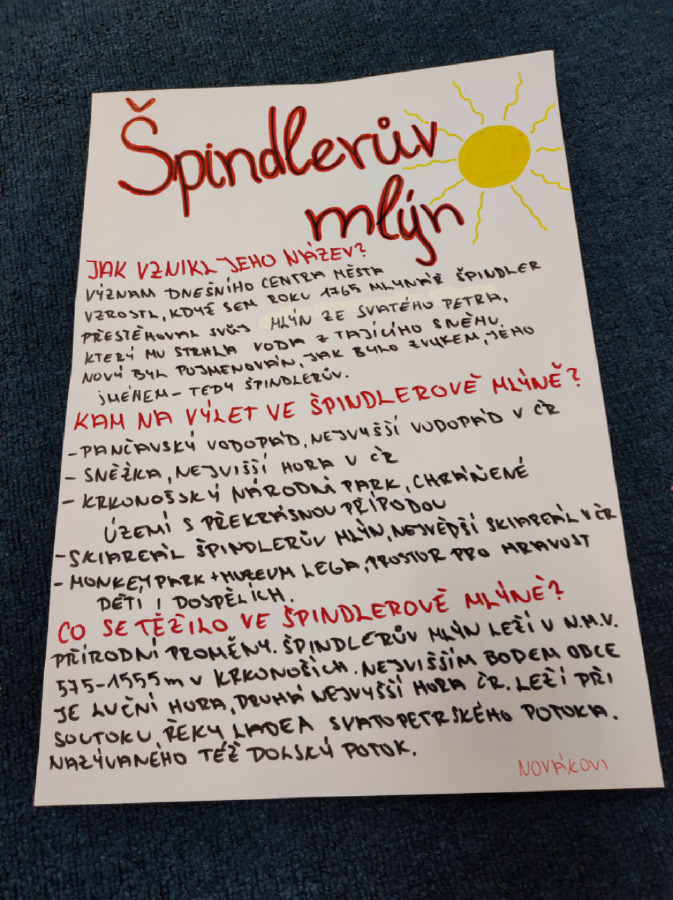 Špindlerův
mlýn
JAK VZNIKL JEHO NÁZEV?
VÝZNAM DNEŠNÍHO CENTRA MĚSTA
VZROSTL, KDYŽ SEM ROKU 1765 MLYNÁŘ ŠPINDLER
PŘESTĚHOVAL SVŮJ MLÝN ZE SVATÉHO PETRA,
KTERÝ MU STRHLA VODA Z TAJÍCÍHO SNĚHU.
NOVÝ BYL POJMENOVÁN, JAK BYLO ZVYKEM, JEHO
JMÉNEM – TEDY ŠPINDLERŮV.
KAM NA VÝLET VE ŠPINDLEROVĚ MLÝNĚ?
- PANČAVSKÝ VODOPÁD, NEJVYŠŠÍ VODOPÁD V ČR
- SNĚŽKA, NEJVIŠŠÍ HORA V ČR
- KRKONOŠSKÝ NÁRODNÍ PARK, CHRÁNĚNÉ
ÚZEMÍ S PŘEKRÁSNOU PŘÍPODOU
- SKIAREÁL ŠPINDLERŮV MLÝN, NEJVĚDŠÍ SKIAREÁL V ČR
- MONKEYPARK + MUZEUM LEGA, PROSTOR PRO HRAVOST
DĚTÍ I DOSPĚLÍCH.
CO SE TĚŽILO VE ŠPINDLEROVĚ MLÝNĚ?
PŘÍRODNÍ PROMĚNY. ŠPINDLERŮV MLÝN LEŽÍ V N.M.V.
575-1555m V KRKONOŠÍCH. NEJVIŠŠÍM BODEM OBCE
JE LUČNÍ HORA, DRUHÁ NEJVYŠŠÍ HORA ČR. LEŽÍ PŘI
SOUTOKU, ŘEKY LABEA SVATOPETRSKÉHO POTOKA.
NAZÝVANÉHO TÉŽ DOLSKÝ POTOK.
NOVÁKOVI